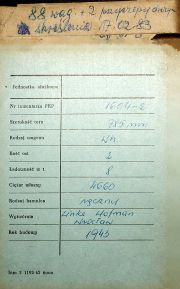 88 wag. + 2 przyczepy
skreślenia 17.02.83
Jednostka służbowa
Nr inwentarza PKP 1604-S
Szerokość toru 785 mm
Rodzaj wagonu Wh.
Ilość osi 2
Ładowność w t. 8
Ciężar własny 4660
Rodzaj hamulca ręczny
Wytwórnia Linke Hofman
Wrocław
Rok budowy 1943